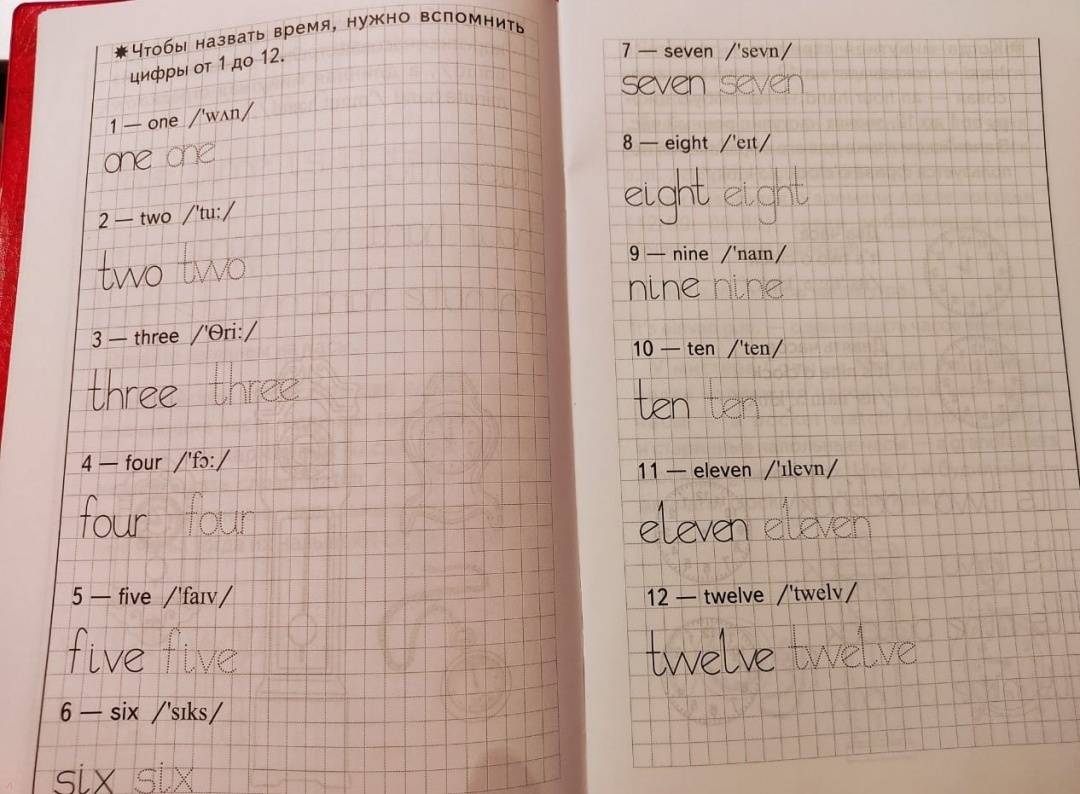 ✷ Чтобы назвать время, нужно вспомнить
цифры от 1 до 12.
1 — one /'wʌn/
one one
2 — two /'tu:/
two two
3 — three /'Ɵri:/
three three
4 — four /'fɔ:/
four four
5 — five /'faɪv/
five five
6 — six /'sɪks/
six six
7 — seven /'sevn/
seven seven
8 — eight /'eɪt/
eight eight
9 — nine /'naɪn/
nine nine
10 — ten /'ten/
ten ten
11 — eleven /'ɪlevn/
eleven eleven
12 — twelve /'twelv/
twelve twelve